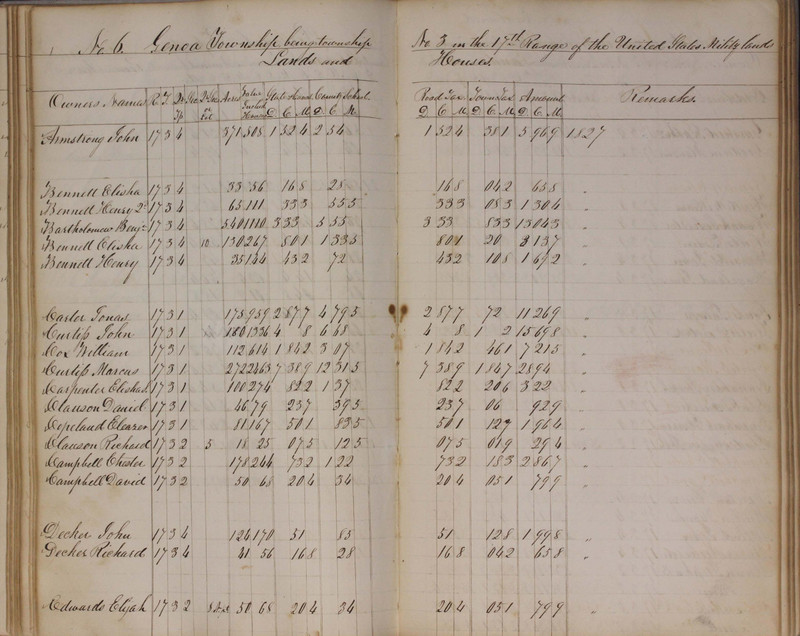 No 6. Genoa Township being township No 3 in the 17th Range of the United States Military lands
Lands and Houses
Owners Names R T Acres Value State Canal County School Road Tax Town Tax Amount Remarks
D C M D C M D C M D C M D C M
Armstrong John 17 3 4 371 508 1 52 4 2 54 1 52 4 38 1 5 96 9 1827
Bennett Elisha 17 3 4 33 56 16 8 28 16 8 04 2 65 8 "
Bennett Henry 2d 17 3 4 65 111 33 3 55 5 33 3 08 3 1 30 4 "
Bartholomew Benjn 17 3 4 540 1110 3 33 5 55 3 33 83 3 13 04 3 "
Bennett Elisha 17 3 4 10 130 267 80 1 1 33 5 80 1 20 3 13 7 "
Bennett Henry 17 3 4 35 144 43 2 72 43 2 10 8 1 69 2 "
Carter Jonas 17 3 1 175 959 2 87 7 4 79 5 2 87 7 72 11 26 9 "
Curtiss John 17 3 1 180 1336 4 8 6 68 4 8 1 2 15 69 8 "
Cox William 17 3 1 112 614 1 84 2 3 07 1 84 2 46 1 7 21 5 "
Curtiss Marcus 17 3 1 272 2463 7 38 9 12 31 5 7 38 9 1 84 7 28 94 "
Carpenter Elisha 17 3 1 100 274 82 2 1 37 82 2 20 6 3 22 "
Clauson Daniel 17 3 1 46 79 23 7 39 5 23 7 06 92 9 "
Copeland Eleazer 17 3 1 81 167 50 1 83 5 50 1 12 7 1 96 4 "
Clauson Richard 17 3 2 5 18 25 07 5 12 5 07 5 01 9 29 4 "
Campbell Chester 17 3 2 178 244 73 2 1 22 73 2 18 3 2 86 7 "
Campbell David 17 3 2 50 68 20 4 34 20 4 05 1 79 9 "
Decker John 17 3 4 124 170 51 85 51 12 8 1 99 8 "
Decker Richard 17 3 4 41 56 16 8 28 16 8 04 2 65 8 "
Edwards Elijah 17 3 2 50 68 20 4 34 20 4 05 1 79 9 "